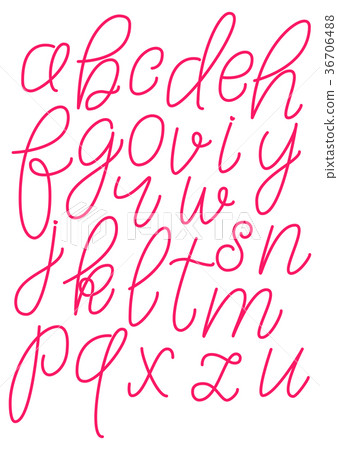 a b c d e h
f g o v i y
r w
j k l t s n
m
p q x z u
PIXTA
pixtastock.com - 36706488